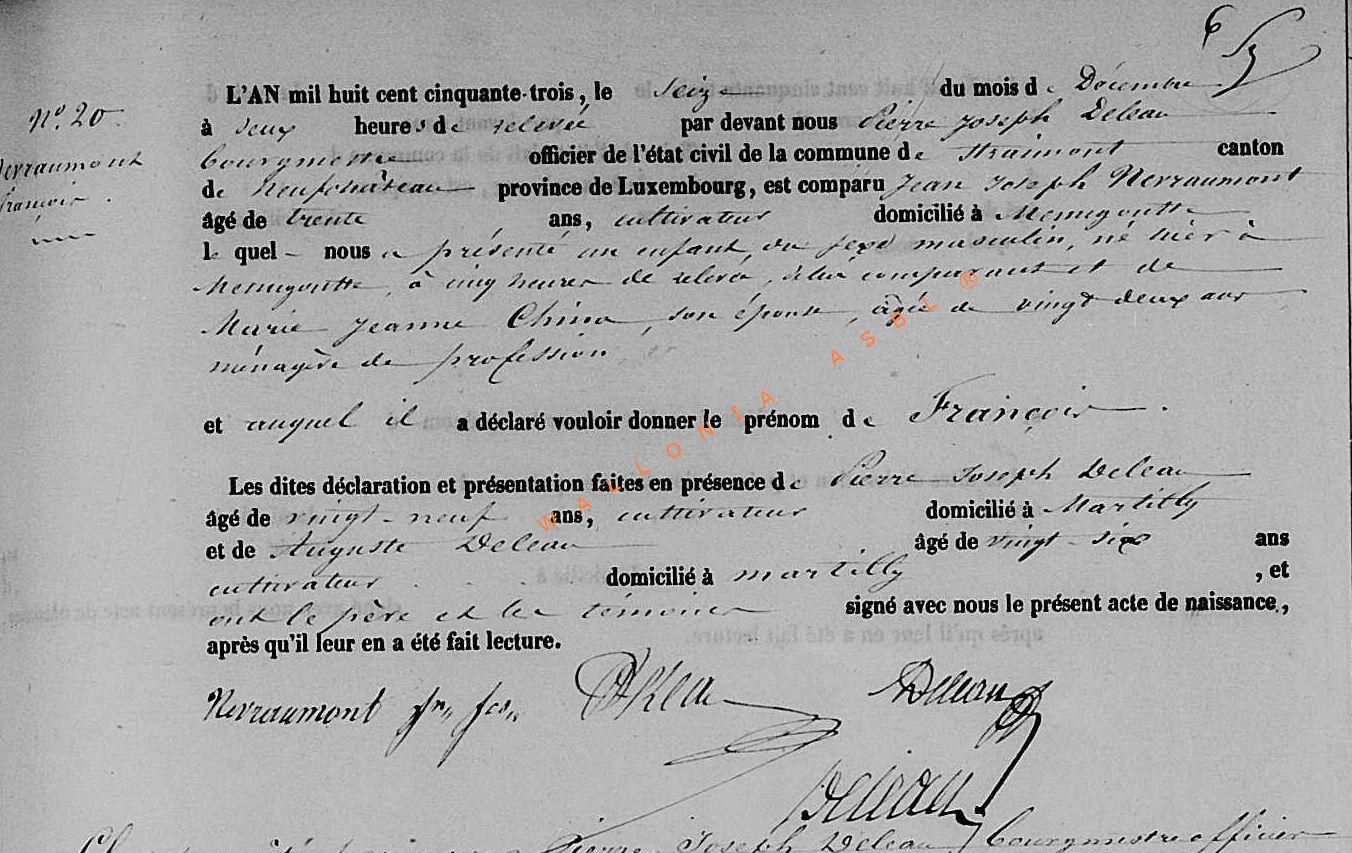 6
L'AN mil huit cent cinquante-trois, le Seize du mois de Décembre
N° 20.
à deux heures de relevée par devant nous Pierre Joseph Deleau
Nerraumont
bourgmestre officier de l'état civil de la commune de Straimont canton
François
de Neufchâteau province de Luxembourg, est comparu Jean Joseph Nerraumont
âgé de trente ans, cultivateur domicilié à Menugoutte
le quel nous a présenté un enfant du sexe masculin, né hier à
Menugoutte, à cinq heures de relevée, de lui comparant et de
Marie Jeanne China, son épouse, âgée de vingt deux ans
ménagère de profession
et auquel il a déclaré vouloir donner le prénom de François.
Les dites déclaration et présentation faites en présence de Pierre Joseph Deleau
âgé de vingt-neuf ans, cultivateur domicilié à Martilly
et de Auguste Deleau âgé de vingt-six ans
cultivateur domicilié à martilly, et
ont le père et les témoins signé avec nous le présent acte de naissance,
après qu'il leur en a été fait lecture.
Nerraumont Jn Jos Deleau
Deleau
Pierre Joseph Deleau bourgmestre officier
WALLONIA ASBL ®